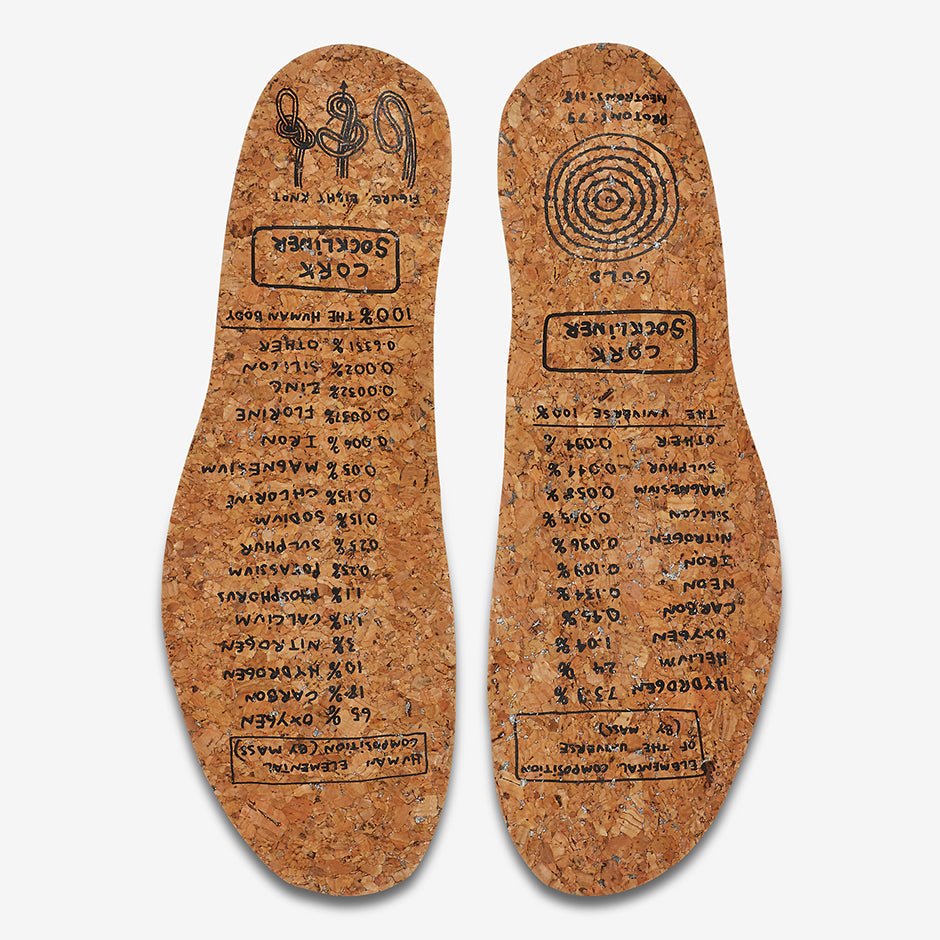 ELEMENTAL COMPOSITION
OF THE UNIVERSE
(BY MASS)
HYDROGEN 73.9 %
HELIUM 24 %
OXYGEN 1.04 %
CARBON 0.45 %
NEON 0.134 %
IRON 0.109 %
NITROGEN 0.096 %
SILICON 0.065 %
MAGNESIUM 0.058 %
SULPHUR 0.044 %
OTHER 0.094 %
THE UNIVERSE 100%
CORK
SOCKLINER
GOLD
PROTONS:79
NEUTRONS:118
HUMAN ELEMENTAL
COMPOSITION (BY MASS)
65 % OXYGEN
18% CARBON
10% HYDROGEN
3% NITROGEN
1.4% CALCIUM
1.1% PHOSPHORUS
0.25% POTASSIUM
025% SULPHUR
0.15% SODIUM
0.15% CHLORINE
0.05% MAGNESIUM
0.006% IRON
0.0037% FLORINE
0.0032% ZINC
0.002% SILICON
0.6351% OTHER
100% THE HUMAN BODY
CORK
SOCKLINER
FIGURE, EIGHT KNOT